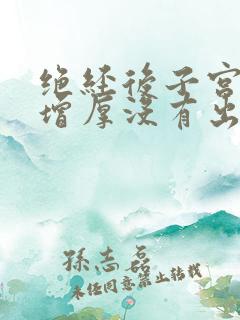 绝经后子宫
增厚没有出
孫志磊
未经同意禁止转载